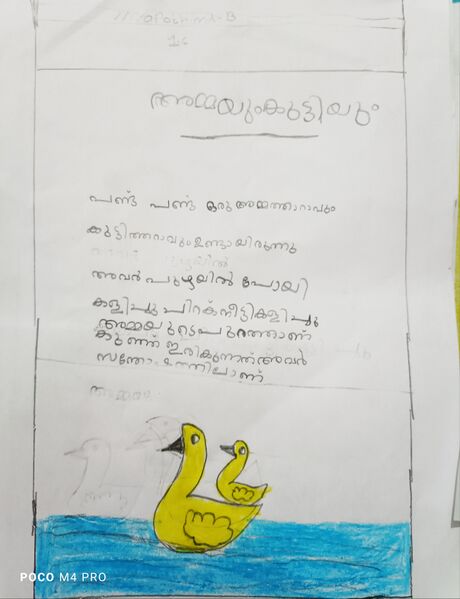 1c
അമ്മയുംകുട്ടിയും
പണ്ട് പണ്ട് ഒരു അമ്മത്താറാവും
കുട്ടിത്തറാവും ഉണ്ടായിരുന്നു
അവർ പുഴയിൽ പോയി
കളിച്ചു പിറക്നീട്ടികളിച്ചു
അമ്മയുടെപുറത്താണ്
കുഞ്ഞ് ഇരികുന്നത്അവർ
സന്തോഷത്തിലാണ്
POCO M4 PRO